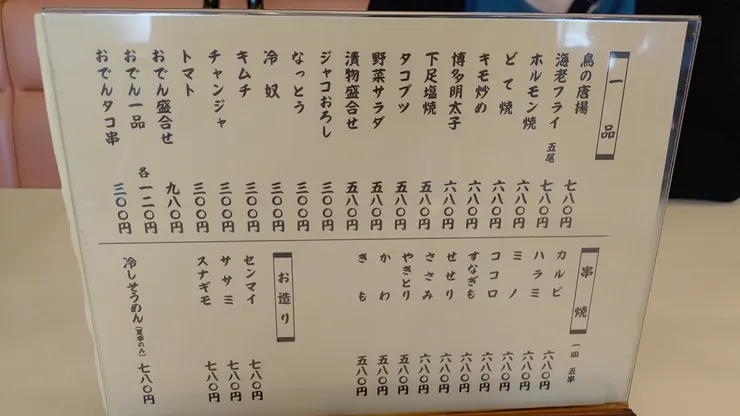 一品
鳥の唐揚 七八〇円
海老フライ 五尾 七八〇円
ホルモン焼 六八〇円
どて焼 六八〇円
キモ炒め 六八〇円
博多明太子 六八〇円
下足塩焼 五八〇円
タコブツ 五八〇円
野菜サラダ 五八〇円
漬物盛合せ 五八〇円
ジャコおろし 三〇〇円
なっとう 三〇〇円
冷奴 三〇〇円
キムチ 三〇〇円
チャンジャ 三〇〇円
トマト 三〇〇円
おでん盛合せ 九八〇円
おでん一品 各一二〇円
おでんタコ串 三〇〇円
串焼 一皿 五串
カルビ 六八〇円
ハラミ 六八〇円
ミノ 六八〇円
ココロ 六八〇円
すなぎも 六八〇円
せせり 六八〇円
ささみ 六八〇円
やきとり 五八〇円
かわ 五八〇円
きも 五八〇円
お造り
センマイ 七八〇円
ササミ 七八〇円
スナギモ 七八〇円
冷しそうめん(夏季のみ) 七八〇円